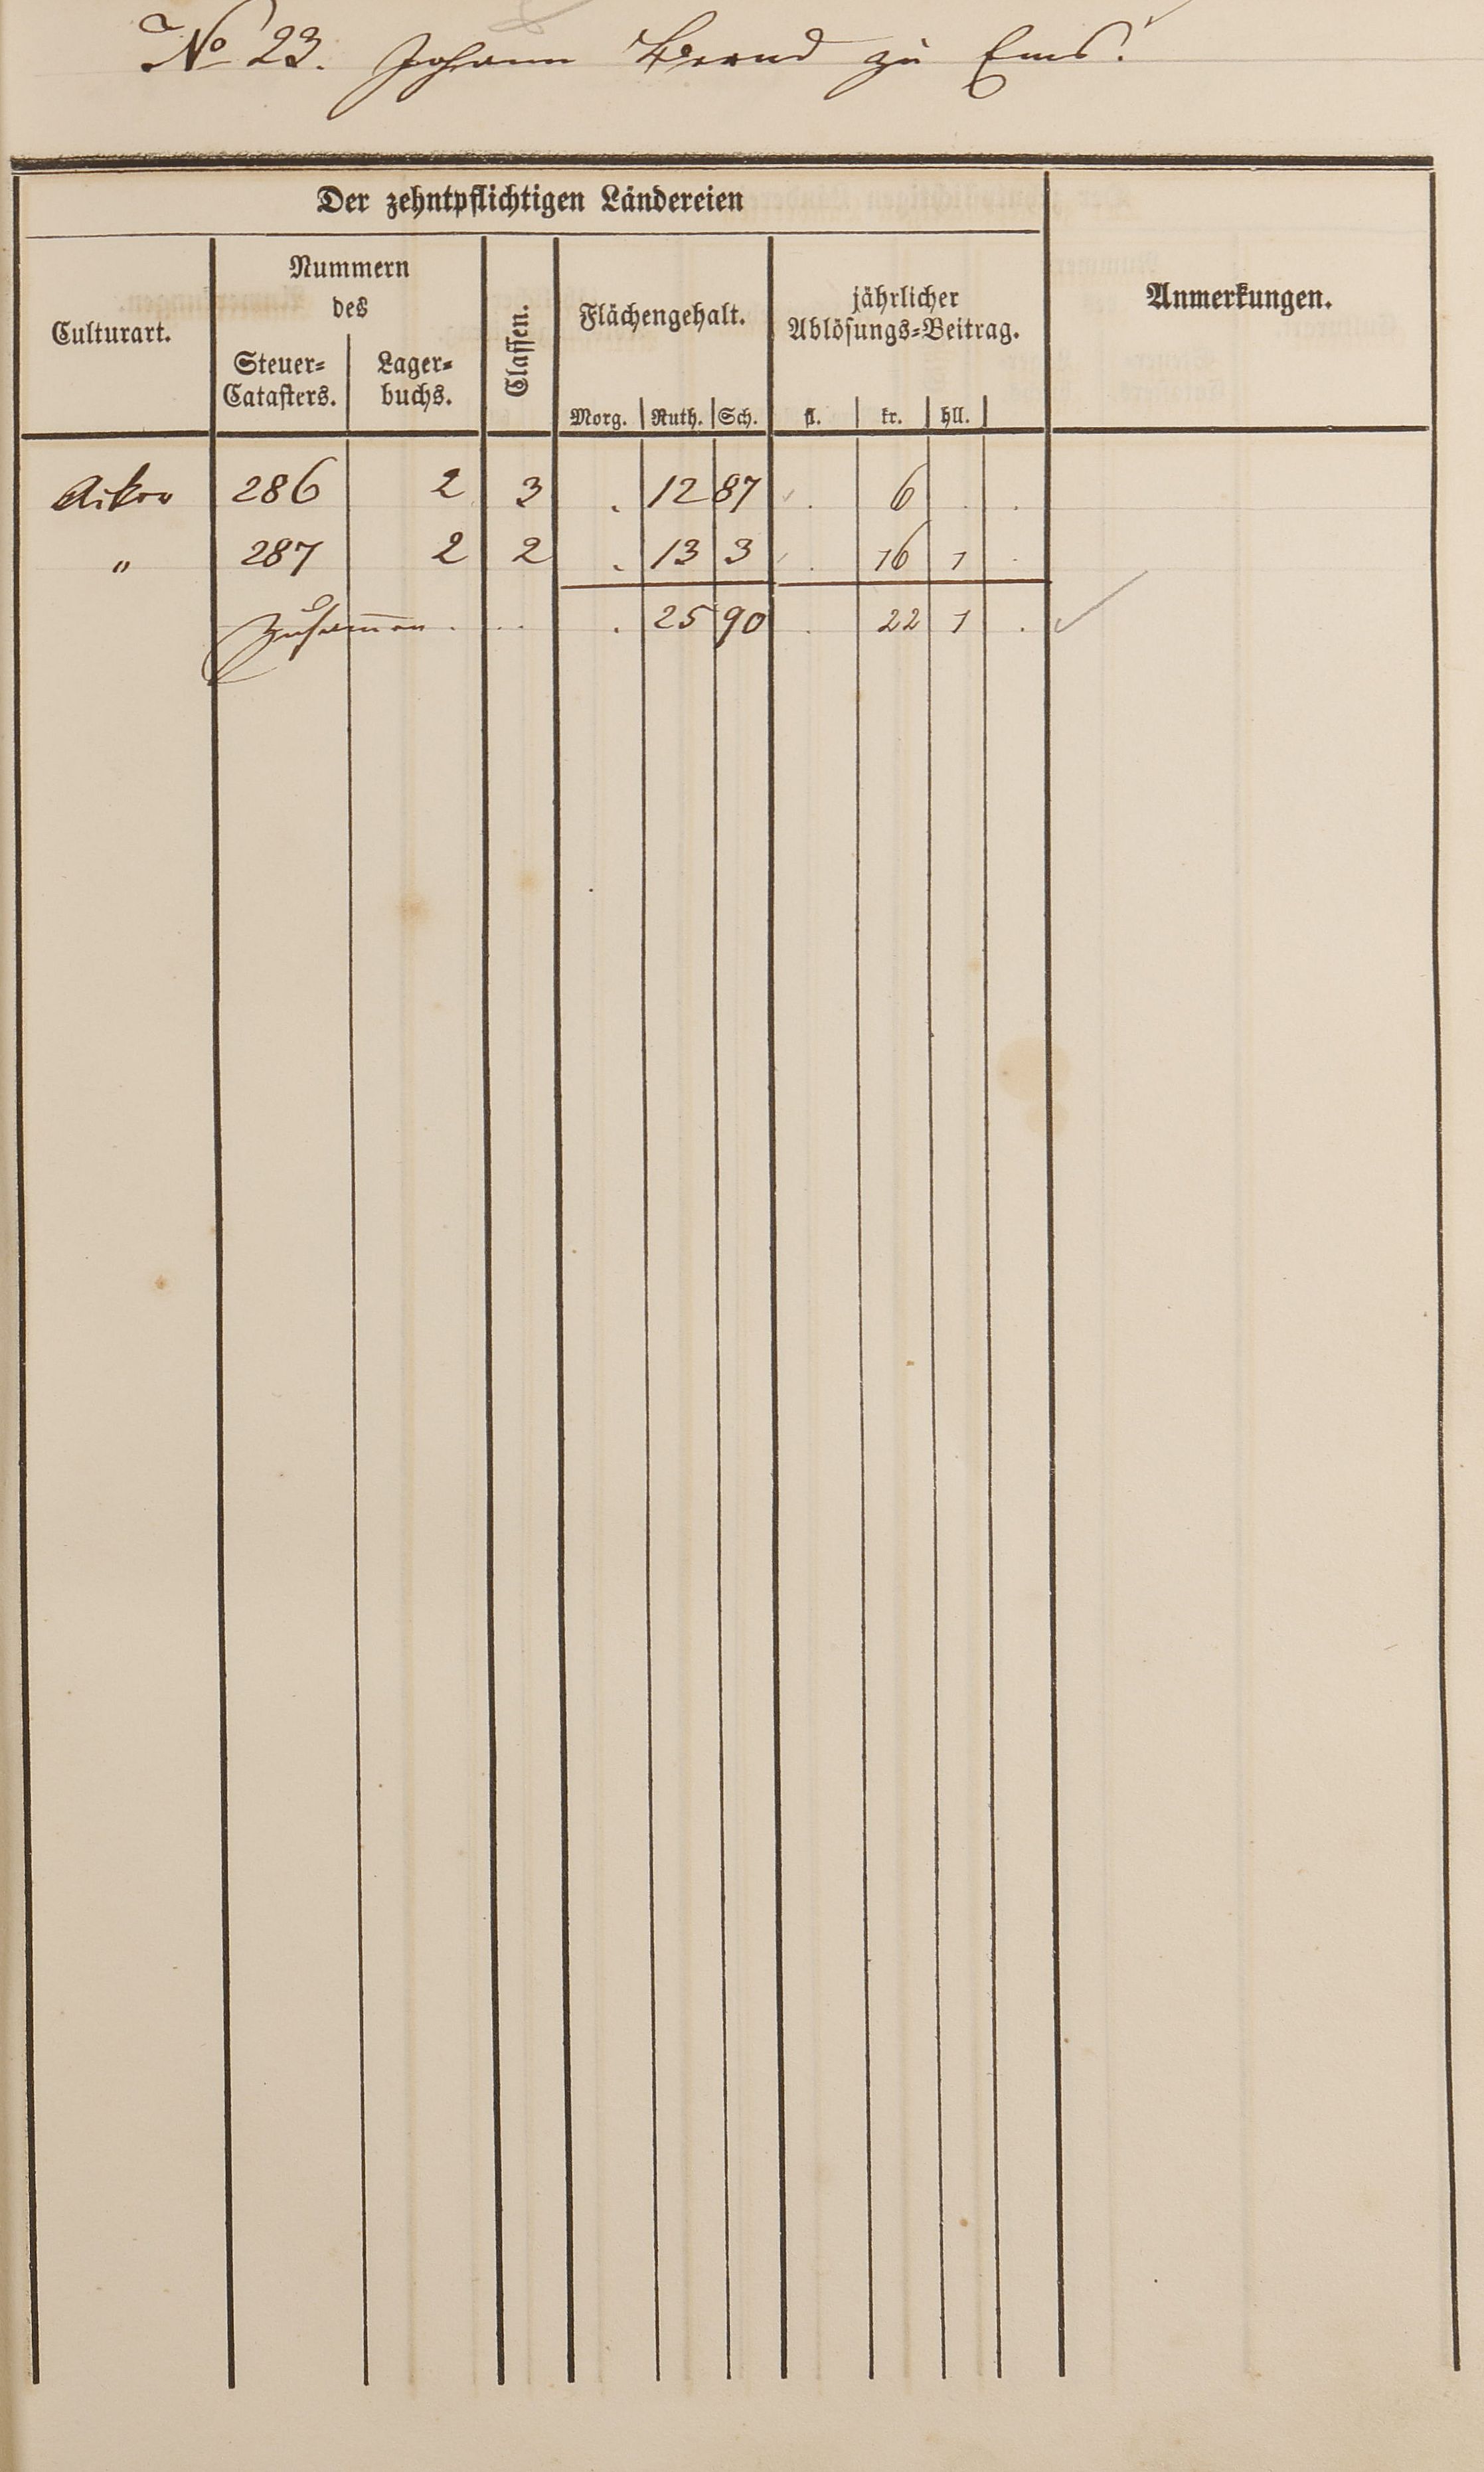 No 23. Johann Bernd zu Ems.
Der zehntpflichtigen Ländereien
Culturart.
Nummern des
Steuer-Catasters.
Lager-buchs.
Classen.
Flächengehalt.
Morg. Ruth. Sch.
jährlicher Ablösungs-Beitrag.
fl. kr. hll.
Anmerkungen.
Acker 286 2 3 . 12 87 . 6 . .
" 287 2 2 . 13 3 . 16 1 .
Zusammen . . . . 25 90 . 22 1 .